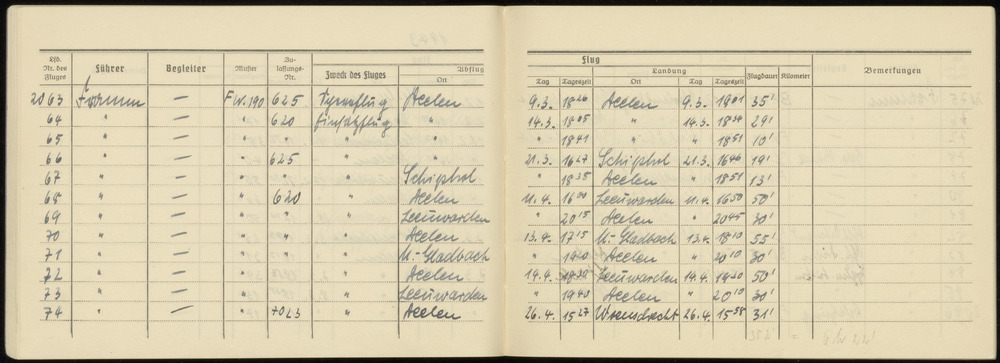 1943
Flug
Lfd. Nr. des Fluges Führer Begleiter Muster Zulassungs-Nr. Zweck des Fluges Abflug Ort Tag Tageszeit Landung Ort Tag Tageszeit Flugdauer Kilometer Bemerkungen
2063 — F.W.190 625 Deelen 9.3. 18 26 Deelen 9.3. 19 01 35'
64 " — " 620 Einsatzflug " 14.3. 18 05 " 14.3. 18 34 29'
65 " — " " " " " 18 41 " " 18 51 10'
66 " — " 625 " " 21.3. 16 27 Schiphol 21.3. 16 46 19'
67 " — " " " Schiphol " 18 38 Deelen " 18 51 13'
68 " — " 620 " Deelen 11.4. 16 00 Leeuwarden 11.4. 16 50 50'
69 " — " " " Leeuwarden " 20 15 Deelen " 20 45 30'
70 " — " " " Deelen 13.4. 17 15 M.-Gladbach 13.4. 18 10 55'
71 " — " " " M.-Gladbach " 19 40 Deelen " 20 10 30'
72 " — " " " Deelen 19.4. Leeuwarden 19.4. 19 20 50'
73 " — " " " Leeuwarden " 19 40 Deelen " 20 10 30'
74 " — " 7023 " Deelen 26.4. 15 27 Woensdrecht 26.4. 15 58 31'